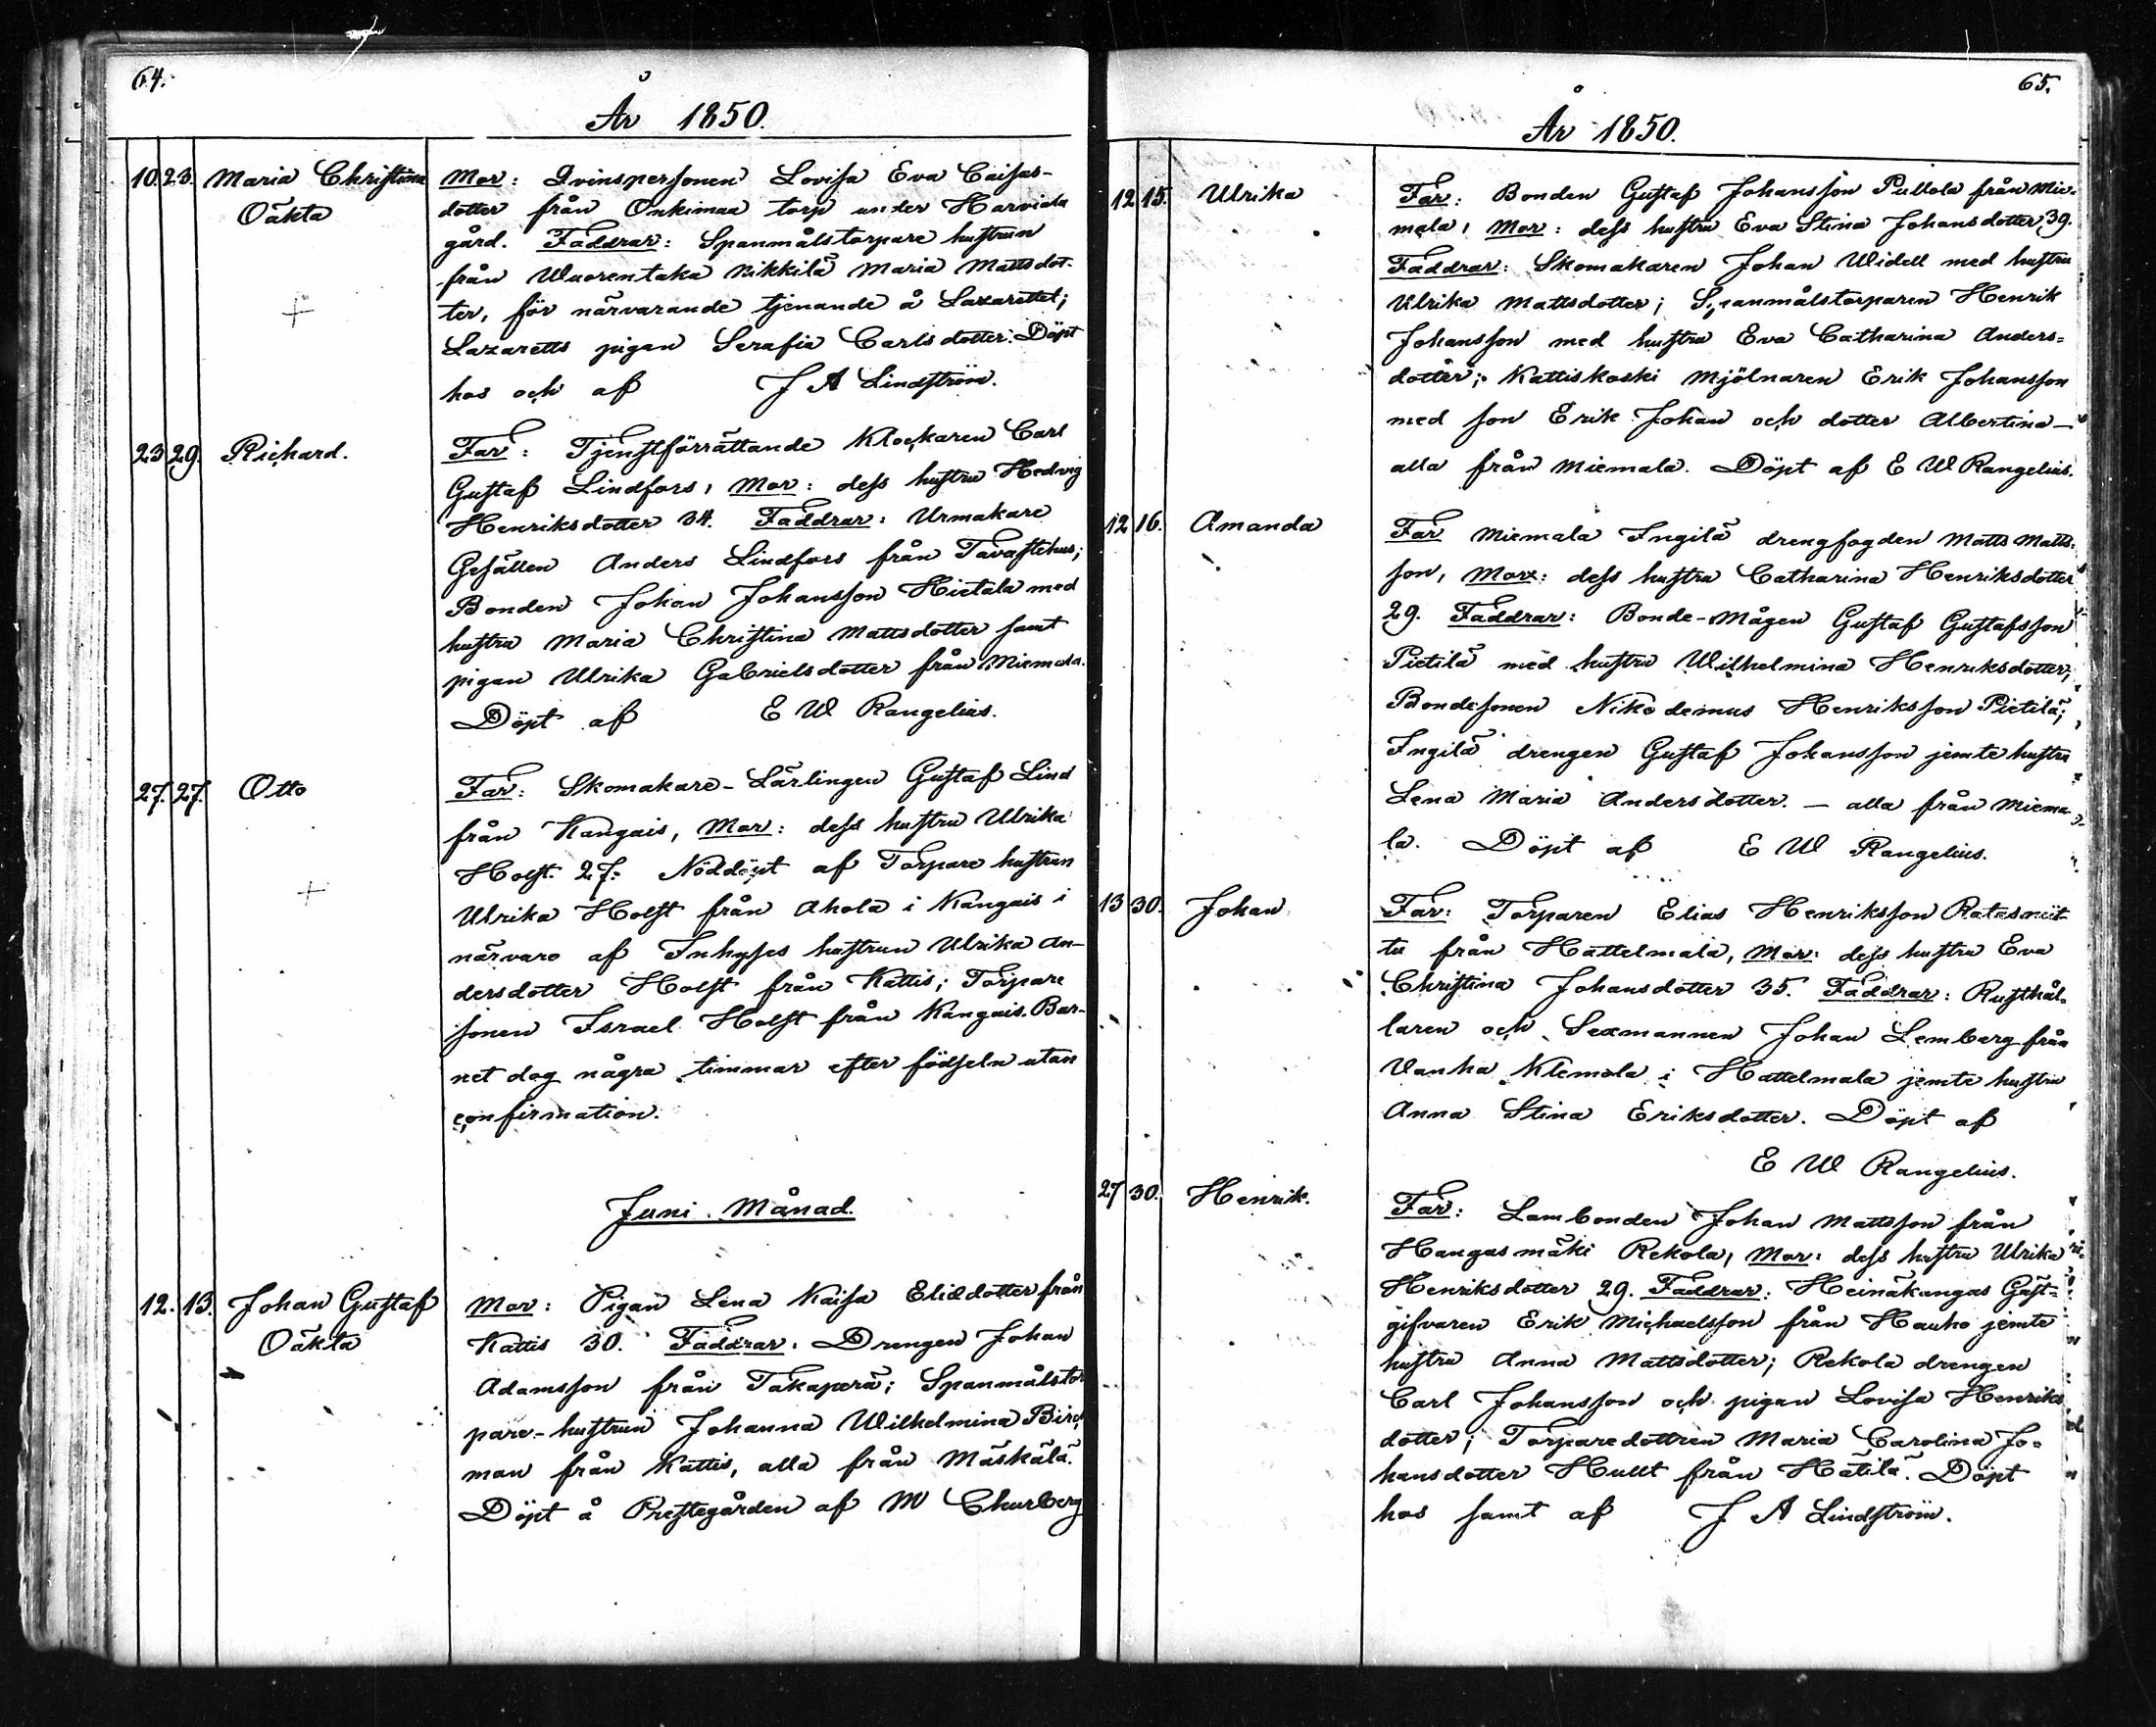 64.
År 1850.
10. 23. Maria Christina Mor: Qvinspersonen Lovisa Eva Caisas-
Oäkta dotter från Onkimaa torp under Harviala
gård. Faddrar: Spanmålstorpare hustrun
från Wuorentaka Nikkilä Maria Mattsdot-
ter, för närvarande tjenande å Lazarettet;
Lazaretts pigan Serafia Carlsdotter. Döpt
hos och af J A Lindström.
23 29. Richard. Far: Tjenstförrättande Klockaren Carl
Gustaf Lindfors, Mor: dess hustru Hedvig
Henriksdotter 34. Faddrar: Urmakare
Gesällen Anders Lindfors från Tavastehus;
Bonden Johan Johansson Hietala med
hustru Maria Christina Mattsdotter samt
pigan Ulrika Gabrielsdotter från Miemala.
Döpt af E W Rangelius.
27. 27. Otto Far: Skomakare-Lärlingen Gustaf Lind
från Kangais, Mor: dess hustru Ulrika
Holst. 27. Nöddöpt af Torpare hustrun
Ulrika Holst från Ahola i Kangais i
närvaro af Inhyses hustrun Ulrika An-
dersdotter Holst från Kattis; Torpare
sonen Israel Holst från Kangais. Bar-
net dog några timmar efter födseln utan
confirmation.
Juni Månad.
12. 13. Johan Gustaf Mor: Pigan Lena Kaisa Eliædotter från
Oäkta Kattis 30. Faddrar: Drengen Johan
Adamsson från Takaperä; Spanmålstor
pare-hustrun Johanna Wilhelmina Birck
man från Kattis, alla från Mäskälä.
Döpt å Prestegården af M Churberg
65.
År 1850.
12 15. Ulrika Far: Bonden Gustaf Johansson Pullola från Mie-
mala, Mor: dess hustru Eva Stina Johansdotter 39.
Faddrar: Skomakaren Johan Widell med hustru
Ulrika Mattsdotter; Spanmålstorparen Henrik
Johansson med hustru Eva Catharina Anders-
dotter; Kattiskoski Mjölnaren Erik Johansson
med son Erik Johan och dotter Albertina —
alla från Miemala. Döpt af E W Rangelius.
12 16. Amanda Far Miemala Ingilä drengfogden Matts Matts-
son, Mor: dess hustru Catharina Henriksdotter
29. Faddrar: Bonde-Mågen Gustaf Gustafsson
Pietilä med hustru Wilhelmina Henriksdotter;
Bondesonen Nikodemus Henriksson Pietilä;
Ingilä drengen Gustaf Johansson jemte hustru
Lena Maria Andersdotter. — alla från Miema-
la. Döpt af E W Rangelius.
13 30. Johan Far: Torparen Elias Henriksson Ratasniit-
tu från Hattelmala, Mor: dess hustru Eva
Christina Johansdotter 35. Faddrar: Rusthål-
laren och Sexmannen Johan Lemberg från
Vanha Klemola i Hattelmala jemte hustru
Anna Stina Eriksdotter. Döpt af
E W Rangelius.
27 30. Henrik. Far: Lambonden Johan Mattsson från
Hangasmäki Rekola, Mor: dess hustru Ulrika
Henriksdotter 29. Faddrar: Heinäkangas Gäst-
gifvaren Erik Michaelsson från Hauho jemte
hustru Anna Mattsdotter; Rekola drengen
Carl Johansson och pigan Lovisa Henriks
dotter; Torparedottren Maria Carolina Jo-
hansdotter Hullt från Hätilä. Döpt
hos samt af J A Lindström.